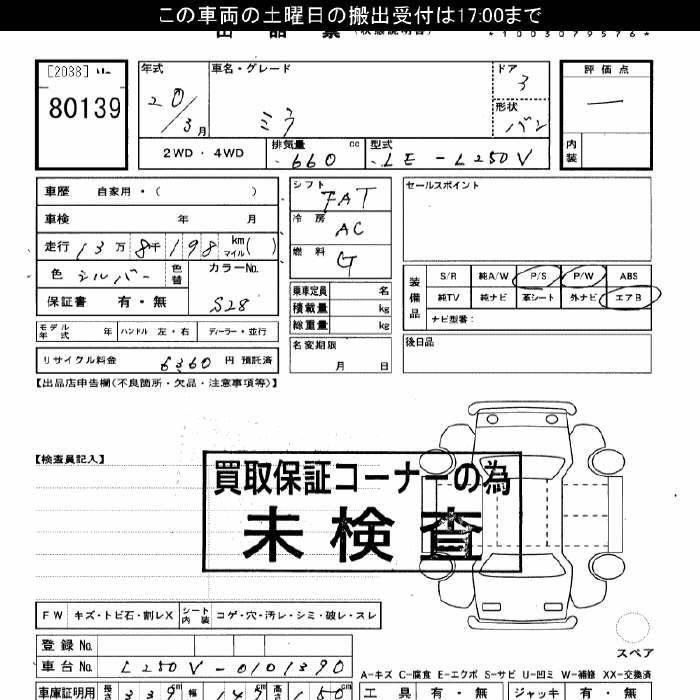 この車両の土曜日の搬出受付は17:00まで
出品票 (状態説明書) *1003079576*
[2038]
80139
年式 20/3月
車名・グレード ミラ
ドア 3
形状 バン
評価点 ー
内装
2WD・4WD 排気量 660 cc 型式 LE-L250V
車歴 自家用・( )
車検 年 月
走行 13万8千198km マイル( )
色 シルバー 色替 カラーNo. S28
保証書 有・無
モデル年式 年 ハンドル 左・右 ディーラー・並行
リサイクル料金 6360 円 預託済
シフト FAT
冷房 AC
燃料 G
乗車定員 名
積載量 kg
総重量 kg
名変期限 月 日
セールスポイント
装備品
S/R 純A/W P/S P/W ABS
純TV 純ナビ 革シート 外ナビ エアB
ナビ型番:
後日品
【出品店申告欄(不良箇所・欠品・注意事項等)】
【検査員記入】
買取保証コーナーの為
未検査
FW キズ・トビ石・割レX シート内装 コゲ・穴・汚レ・シミ・破レ・スレ
スペア
登録No.
車台No. L250V-0101390
A-キズ C-腐食 E-エクボ S-サビ U-凹ミ W-補修 XX-交換済
車庫証明用 長さ 339cm 幅 147cm 高さ 150cm
工具 有・無 ジャッキ 有・無